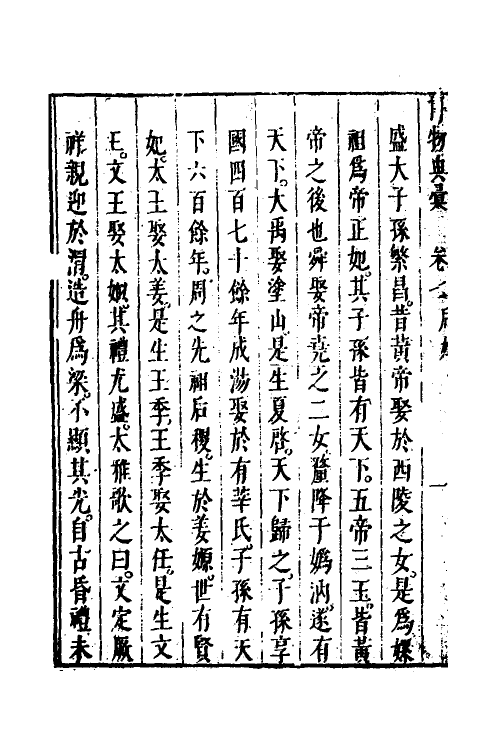 物典彙 卷
盛大子孫繁昌昔黃帝娶於西陵之女是爲嫘
祖爲帝正妃其子孫皆有天下五帝三王皆黃
帝之後也舜娶帝堯之二女釐降于嬀汭遂有
天下大禹娶塗山是生夏啓天下歸之子孫享
國四百七十餘年成湯娶於有莘氏子孫有天
下六百餘年周之先祖后稷生於姜嫄世有賢
妃太王娶太姜是生王季王季娶太任是生文
王文王娶太姒其禮尤盛大雅歌之曰文定厥
祥親迎於渭造舟爲梁不顯其光自古昏禮未